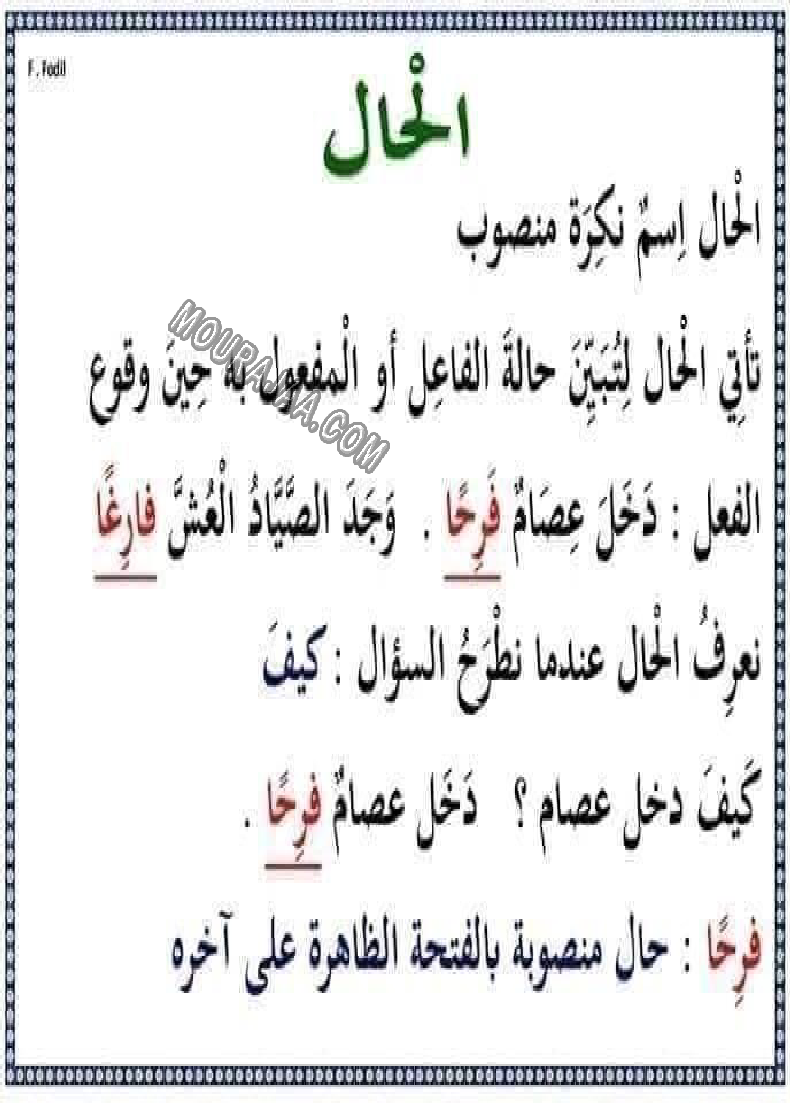 F . Fodil
الْحال
الْحال اِسمٌ نكِرَة منصوب
تأتِي الْحال لِتُبَيِّنَ حالةَ الفاعِل أو الْمفعول به حِينَ وقوع
MOURAJAA.COM
الفعل : دَخَلَ عِصَامٌ فَرِحًا . وَجَدَ الصَّيَّادُ الْعُشَّ فارِغًا
نعرِفُ الْحال عندما نطْرَحُ السؤال : كيفَ
كَيفَ دخل عصام ؟ دَخَل عصامٌ فرِحًا .
فرِحًا : حال منصوبة بالفتحة الظاهرة على آخره